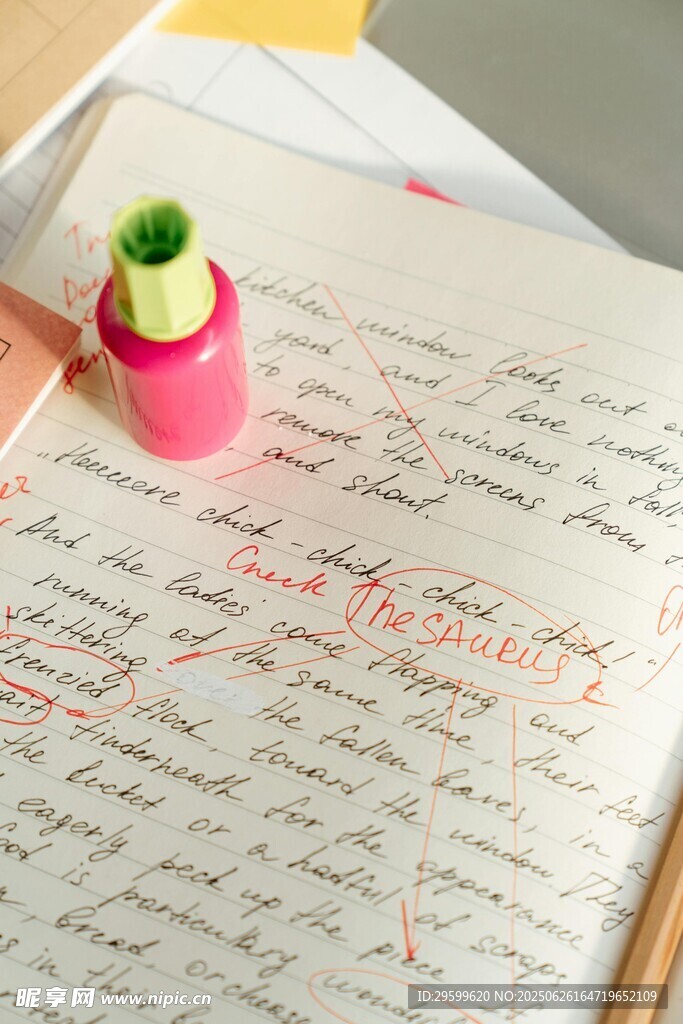 kitchen window looks out o
yard, and I love nothing
to open my windows in fall,
remove the screens from t
, and shout.
„Heeeere chick-chick-chick-chick!"
Check THESAURUS
And the ladies come flapping and
running at the same time, their feet
skittering over the fallen leaves, in a
frenzied flock, toward the window. They
wait underneath for the appearance
the bucket or a hatful of scraps
eagerly peck up the piece
food is particularly wond
, bread or cheese
s in th
昵享网 www.nipic.cn
ID:29599620 NO:20250626164719652109